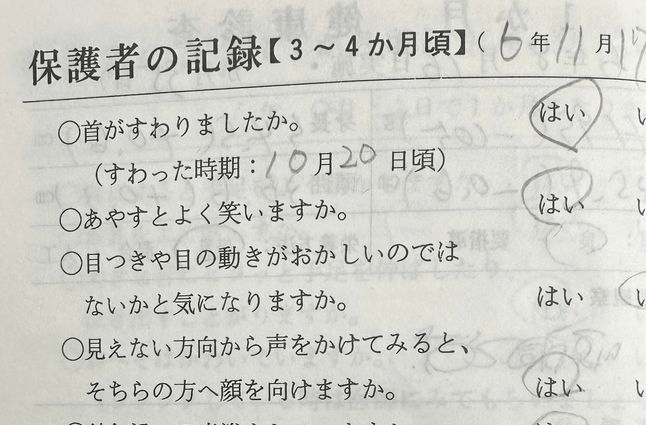 保護者の記録【3～4か月頃】( 6年11月17
○首がすわりましたか。 はい
(すわった時期：10月20日頃)
○あやすとよく笑いますか。 はい
○目つきや目の動きがおかしいのでは
ないかと気になりますか。 はい
○見えない方向から声をかけてみると、
そちらの方へ顔を向けますか。 はい